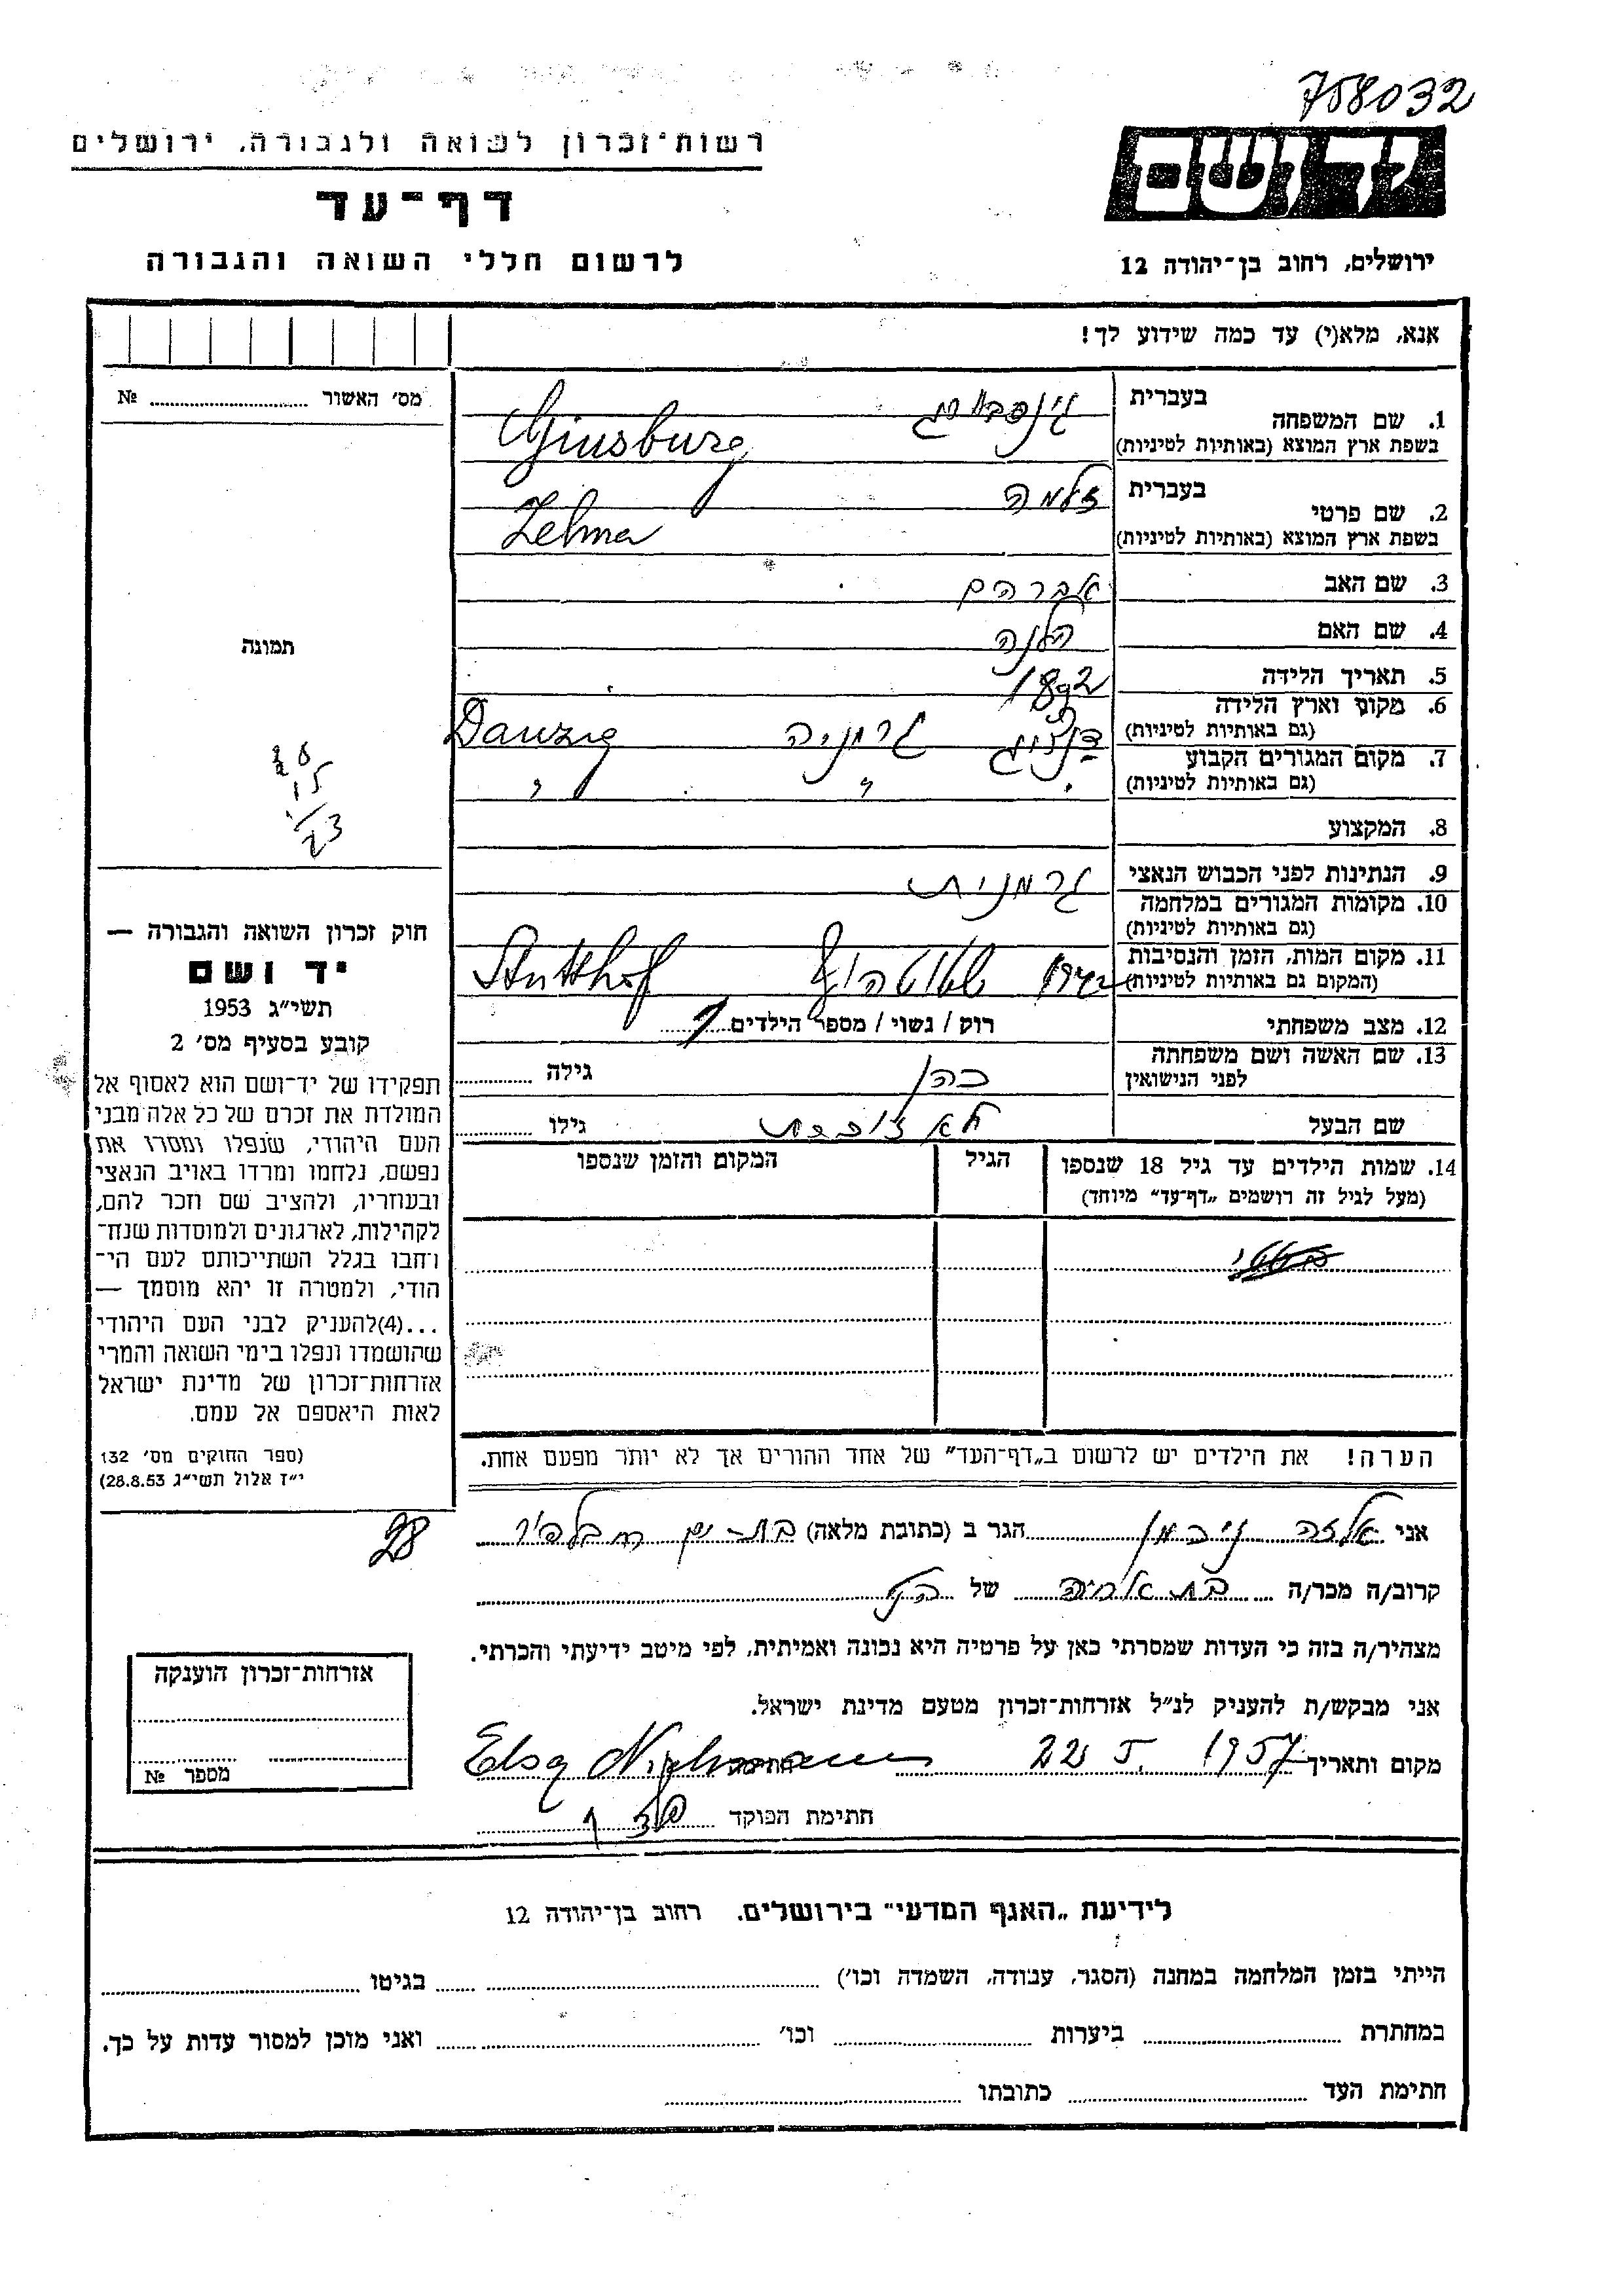 758032
רשות־זכרון לשואה ולגבורה, ירושלים
דף־עד
לרשום חללי השואה והגבורה
יד ושם
ירושלים, רחוב בן־יהודה 12
אנא, מלא(י) עד כמה שידוע לך!
מס׳ האשור № 
תמונה
1. שם המשפחה
בעברית גינסבורג
בשפת ארץ המוצא (באותיות לטיניות) Ginsburg
2. שם פרטי
בעברית זלמה
בשפת ארץ המוצא (באותיות לטיניות) Zelma
3. שם האב אברהם
4. שם האם הלנה
5. תאריך הלידה 1892
6. מקום וארץ הלידה דנציג גרמניה Danzig
(גם באותיות לטיניות)
7. מקום המגורים הקבוע " " "
(גם באותיות לטיניות)
8. המקצוע
9. הנתינות לפני הכבוש הנאצי גרמנית
10. מקומות המגורים במלחמה
(גם באותיות לטיניות)
11. מקום המות, הזמן והנסיבות שטוטהוף Stutthof
(המקום גם באותיות לטיניות)
12. מצב משפחתי רוק / נשוי / מספר הילדים 1
13. שם האשה ושם משפחתה כהן גילה
לפני הנישואין
שם הבעל לא זוכרת גילו
14. שמות הילדים עד גיל 18 שנספו הגיל המקום והזמן שנספו
(מעל לגיל זה רושמים „דף־עד״ מיוחד)
הערה! את הילדים יש לרשום ב„דף־העד״ של אחד ההורים אך לא יותר מפעם אחת.
חוק זכרון השואה והגבורה —
יד ושם
תשי״ג 1953
קובע בסעיף מס׳ 2
תפקידו של יד־ושם הוא לאסוף אל
המולדת את זכרם של כל אלה מבני
העם היהודי, שנפלו ומסרו את
נפשם, נלחמו ומרדו באויב הנאצי
ובעוזריו, ולהציב שם וזכר להם,
לקהילות, לארגונים ולמוסדות שנח־
רחבו בגלל השתייכותם לעם הי־
הודי, ולמטרה זו יהא מוסמך —
...(4)להעניק לבני העם היהודי
שהושמדו ונפלו בימי השואה והמרי
אזרחות־זכרון של מדינת ישראל
לאות היאספם אל עמם.
(ספר החוקים מס׳ 132
י״ז אלול תשי״ג 28.8.53)
28
אני אלזה ניכמן הגר ב (כתובת מלאה) בת-ים
קרוב/ה מכר/ה בת אחיה של הנ"ל
מצהיר/ה בזה כי העדות שמסרתי כאן על פרטיה היא נכונה ואמיתית, לפי מיטב ידיעתי והכרתי.
אני מבקש/ת להעניק לנ״ל אזרחות־זכרון מטעם מדינת ישראל.
מקום ותאריך 22 5. 1957 Elsa
חתימת הפוקד
אזרחות־זכרון הוענקה
מספר №
לידיעת „האגף המדעי״ בירושלים, רחוב בן־יהודה 12
הייתי בזמן המלחמה במחנה (הסגר, עבודה, השמדה וכו׳) בגיטו
במחתרת ביערות וכו׳ ואני מוכן למסור עדות על כך.
חתימת העד כתובתו